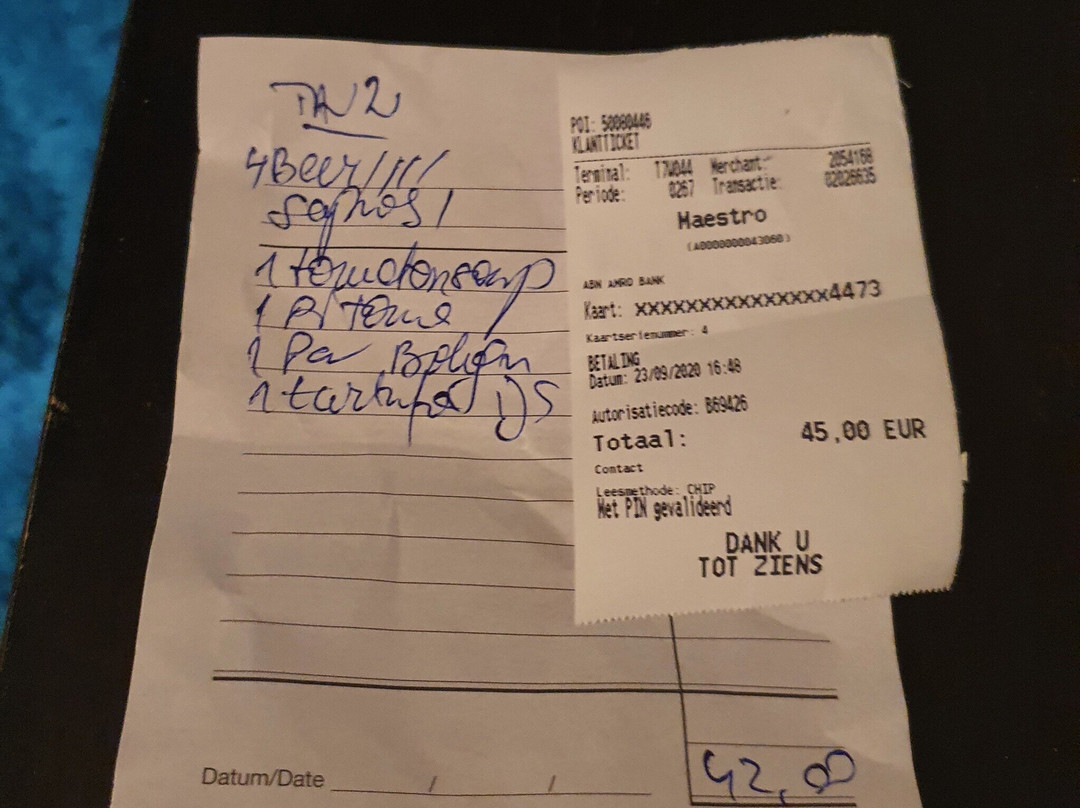 4 Beer ////
1 tomatensoup
1 Pa Bologn
1 tartufo IJS
POI: 50080446
KLANTTICKET
Terminal: T7W044 Merchant: 2054168
Periode: 0267 Transactie: 02026635
Maestro
(A0000000043060)
ABN AMRO BANK
Kaart: xxxxxxxxxxxxxxx4473
Kaartserienummer: 4
BETALING
Datum: 23/09/2020 16:48
Autorisatiecode: B69426
Totaal: 45,00 EUR
Contact
Leesmethode: CHIP
Met PIN gevalideerd
DANK U
TOT ZIENS
42,00
Datum/Date / /